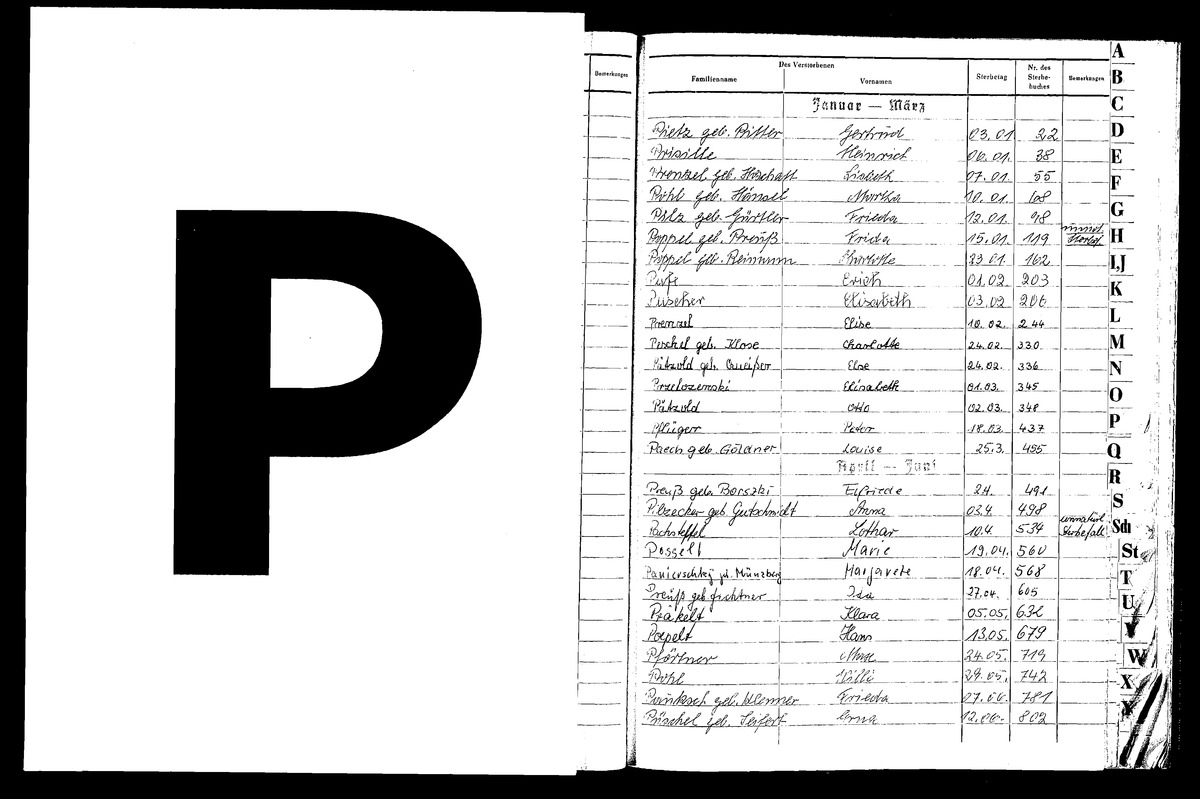 P
Bemerkungen
Des Verstorbenen
Familienname
Vornamen
Sterbetag
Nr. des Sterbe-buches
Bemerkungen
Januar — März
Pietz geb. Ritter Gertrud 03.01 22
Heinrich 06.01. 38
geb. Lisbeth 07.01. 55
Pohl geb. Hänsel Martha 10.01. 68
Pilz geb. Gürtler Frieda 12.01. 98
Poppel geb. Preuß Frida 15.01. 119
Poppel geb. Reimann 23 01. 162
Erich 01.02. 203
Puscher Elisabeth 03.02 206
Prenzel Elise 10.02. 244
Peschel geb. Klose Charlotte 24.02. 330
Pätzold geb. Queißer Else 24.02. 336
Elisabeth 01.03. 345
Pätzold Otto 02.03. 348
Pflüger Peter 18.03. 437
Paech geb. Göldner Louise 25.3. 455
April — Juni
Preuß geb. Borszki Elfriede 2.4. 491
Pilzecker geb. Gutschmidt Anna 03.4. 498
Lothar 10.4. 534 Sterbefall
Posselt Marie 19.04. 560
geb. Münzberg Margarete 18.04. 568
Preuß geb. Fichtner Ida 27.04. 605
Präkelt Klara 05.05. 632
Poepelt Hans 13.05. 679
Pförtner Max 24.05. 719
Pohl Willi 29.05. 742
geb. Frieda 07.06. 781
Püschel geb. Seifert Erna 12.06. 802
A
B
C
D
E
F
G
H
I,J
K
L
M
N
O
P
Q
R
S
Sch
St
T
U
V
W
X
Y